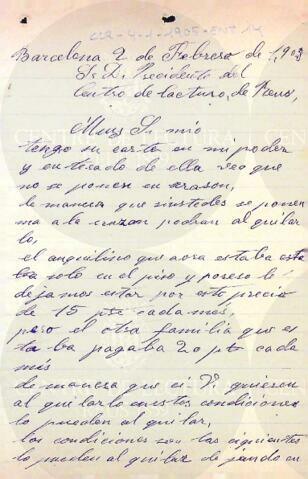 Barcelona 2 de Febrero de 1903
Sr. D. Precidente del
Centro de lacturo, de Reus,
Muy Sr mio
tengo su carta en mi poder
y enterado de ella veo que
no se ponen en srason,
de manera que si ustedes se ponen
ma a la srazon podran alquilar
lo,
el anquilino que aora estaba esta
ba solo en el piso y poreso le
dejamos estar por este precio
de 15 pts cada mes,
pero el otra familia que es
ta ba pagaba 20 pts cada
més
de manera que ci V. quieren
al quilarlo en estas condiciones
lo pueden al quilar,
las condiciones son las ciguientes
lo pueden al quilar dejando en